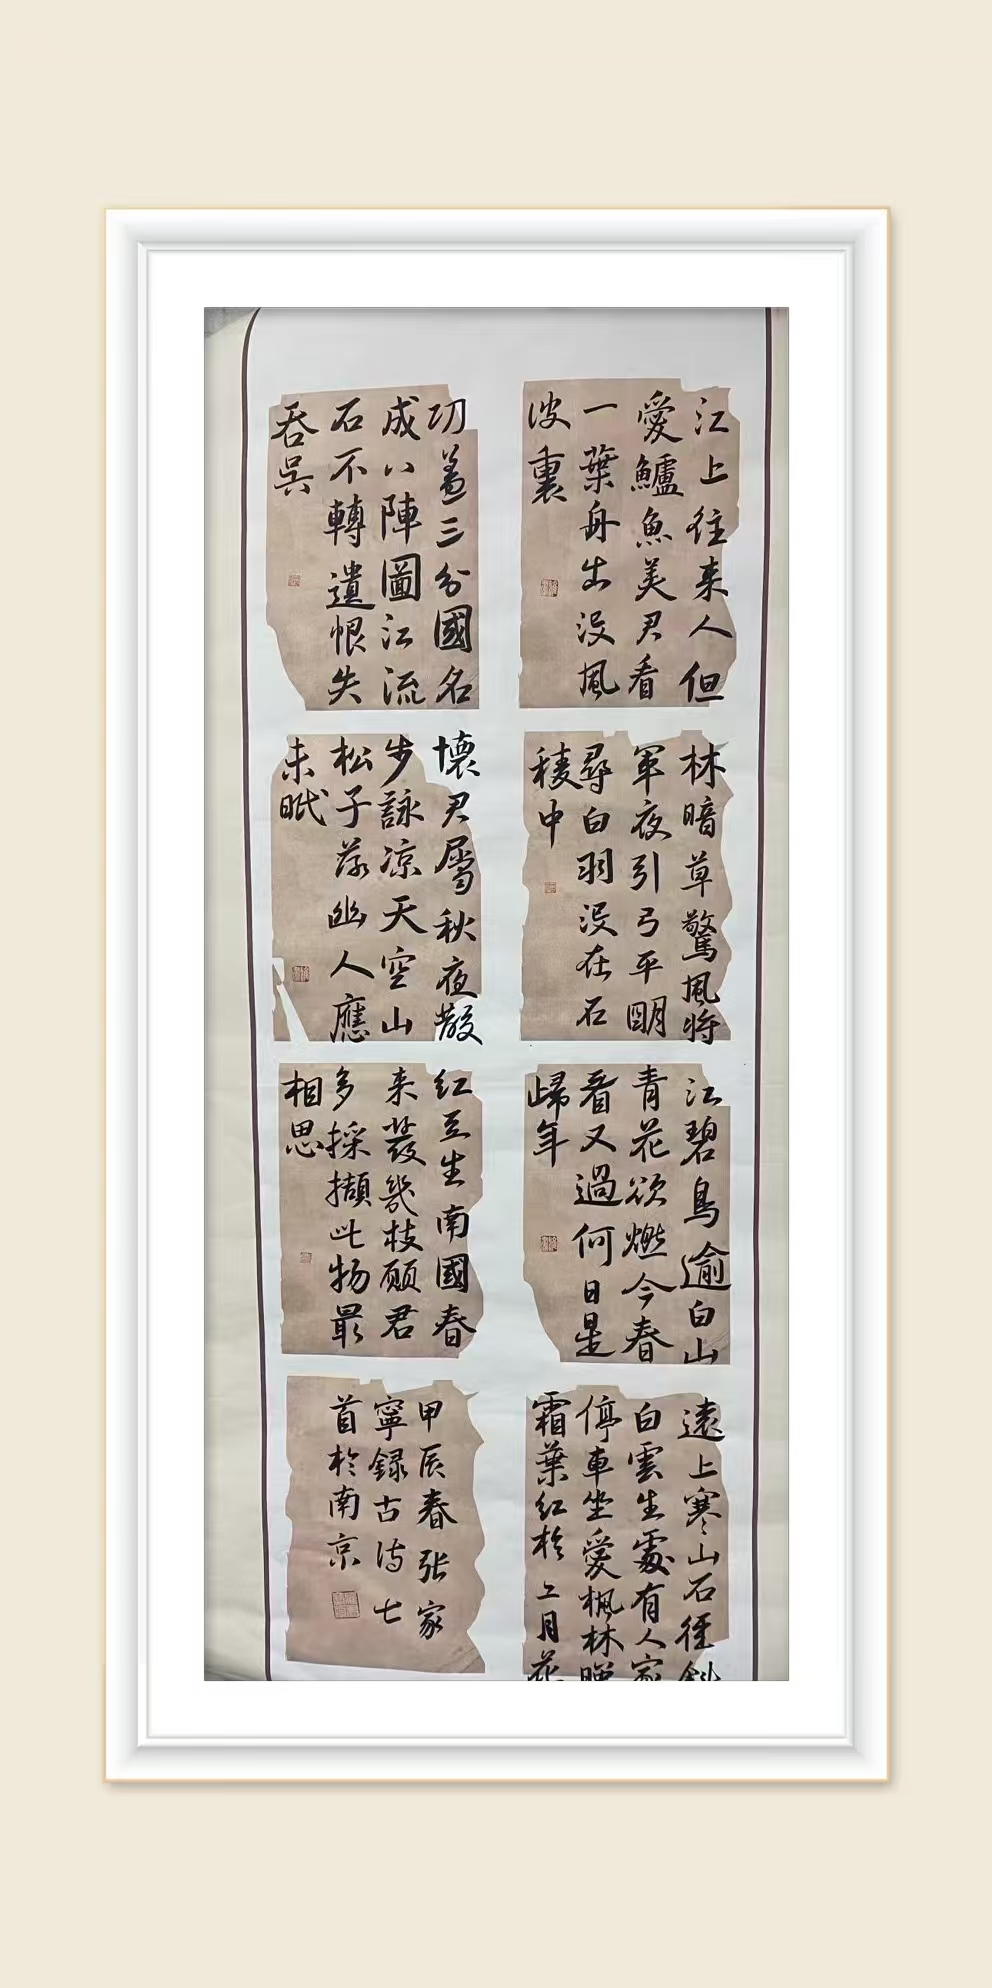 江上往来人但
愛鱸魚美君看
一葉舟出没風
波裏
林暗草驚風将
軍夜引弓平明
尋白羽没在石
稜中
江碧鳥逾白山
青花欲燃今春
看又過何日是
歸年
遠上寒山石徑斜
白雲生處有人家
停車坐愛楓林晚
霜葉紅於二月花
功蓋三分國名
成八陣圖江流
石不轉遺恨失
吞吳
懷君屬秋夜散
步詠凉天空山
松子落幽人應
未眠
红豆生南國春
来發幾枝願君
多採擷此物最
相思
甲辰春张家
寧録古诗七
首於南京